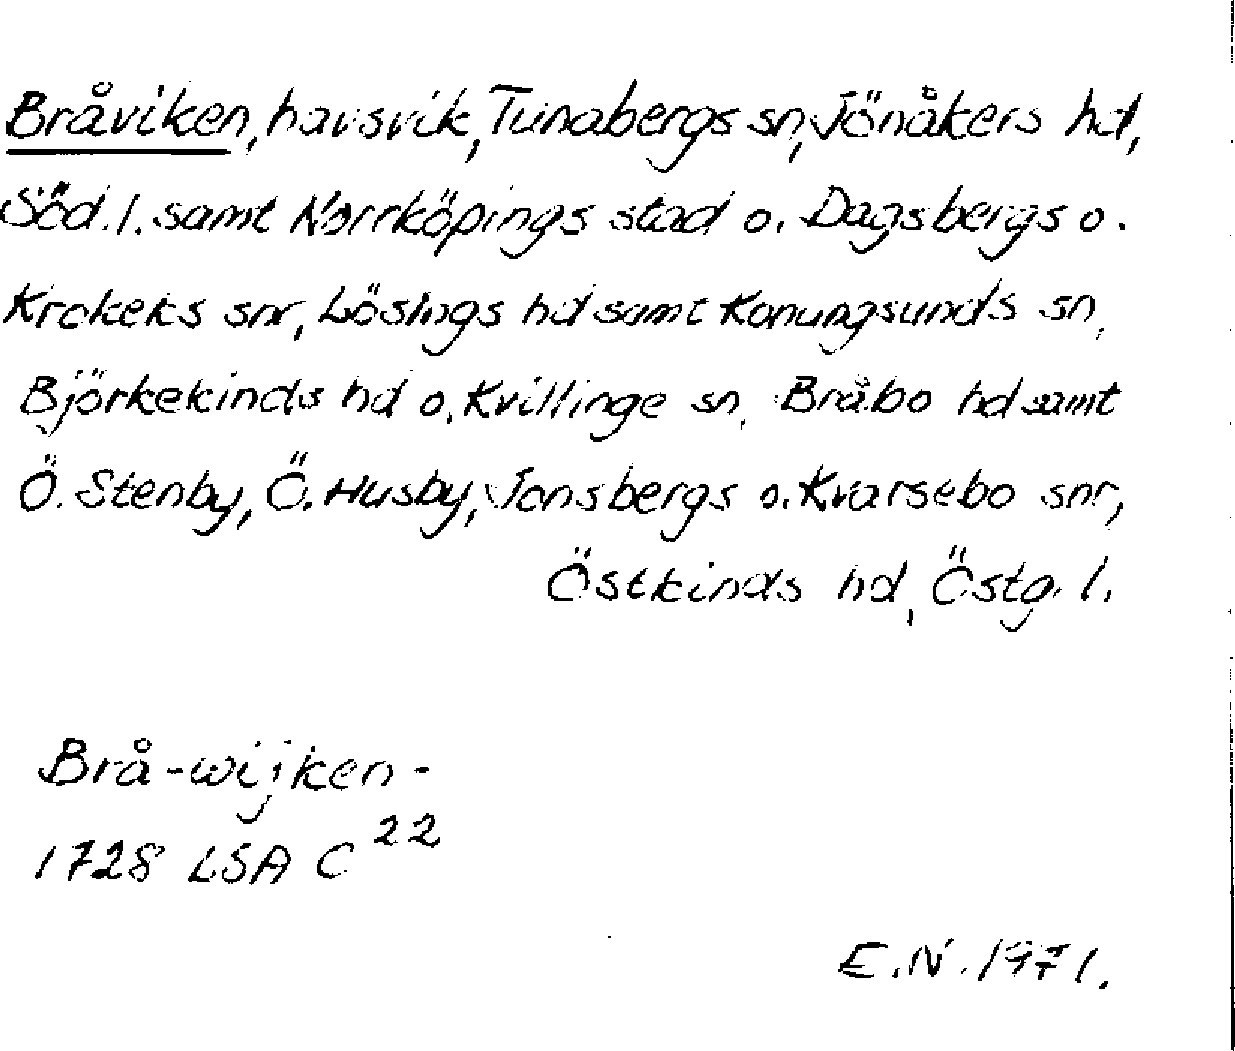 Bråviken, havsvik, Tunabergs sn, Jönåkers hd,
Söd. l. samt Norrköpings stad o. Dagsbergs o.
Krokeks snr, Lösings hd samt Konungsunds sn,
Björkekinds hd o. Kvillinge sn, Bråbo hd samt
Ö. Stenby, Ö. Husby, Jonsbergs o. Kvarsebo snr,
Östkinds hd, Östg. l.
Brå-wijken-
1728 LSA C 22
E.N. 1971.